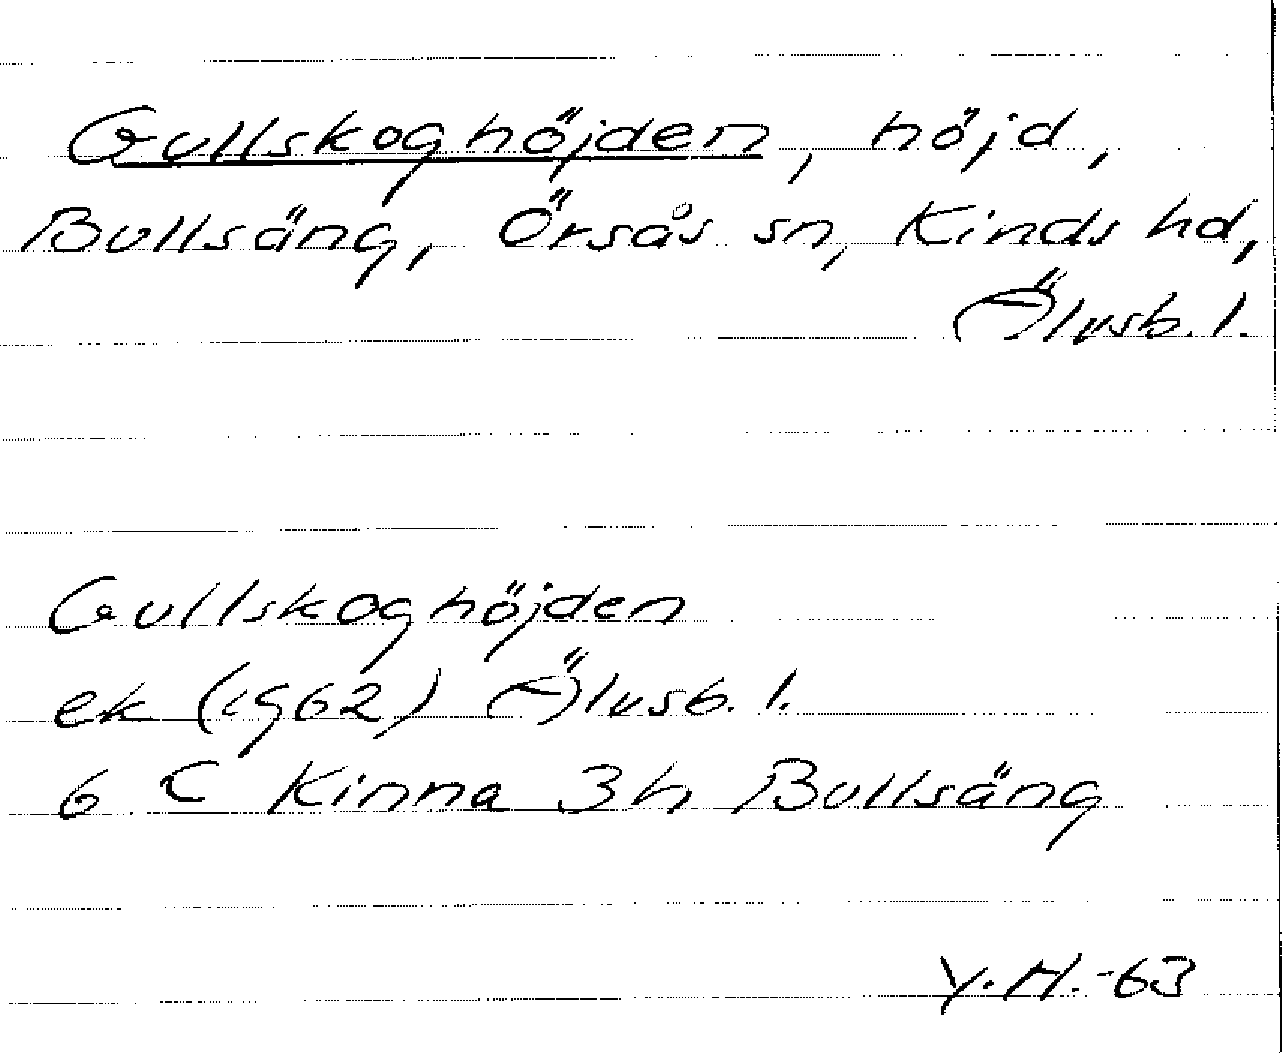 Gullskoghöjden, höjd,
Bullsäng, Örsås sn, Kinds hd,
Älvsb. l.
Gullskoghöjden
ek (1962) Älvsb. l.
6 C Kinna 3h Bullsäng
Y.H.-63